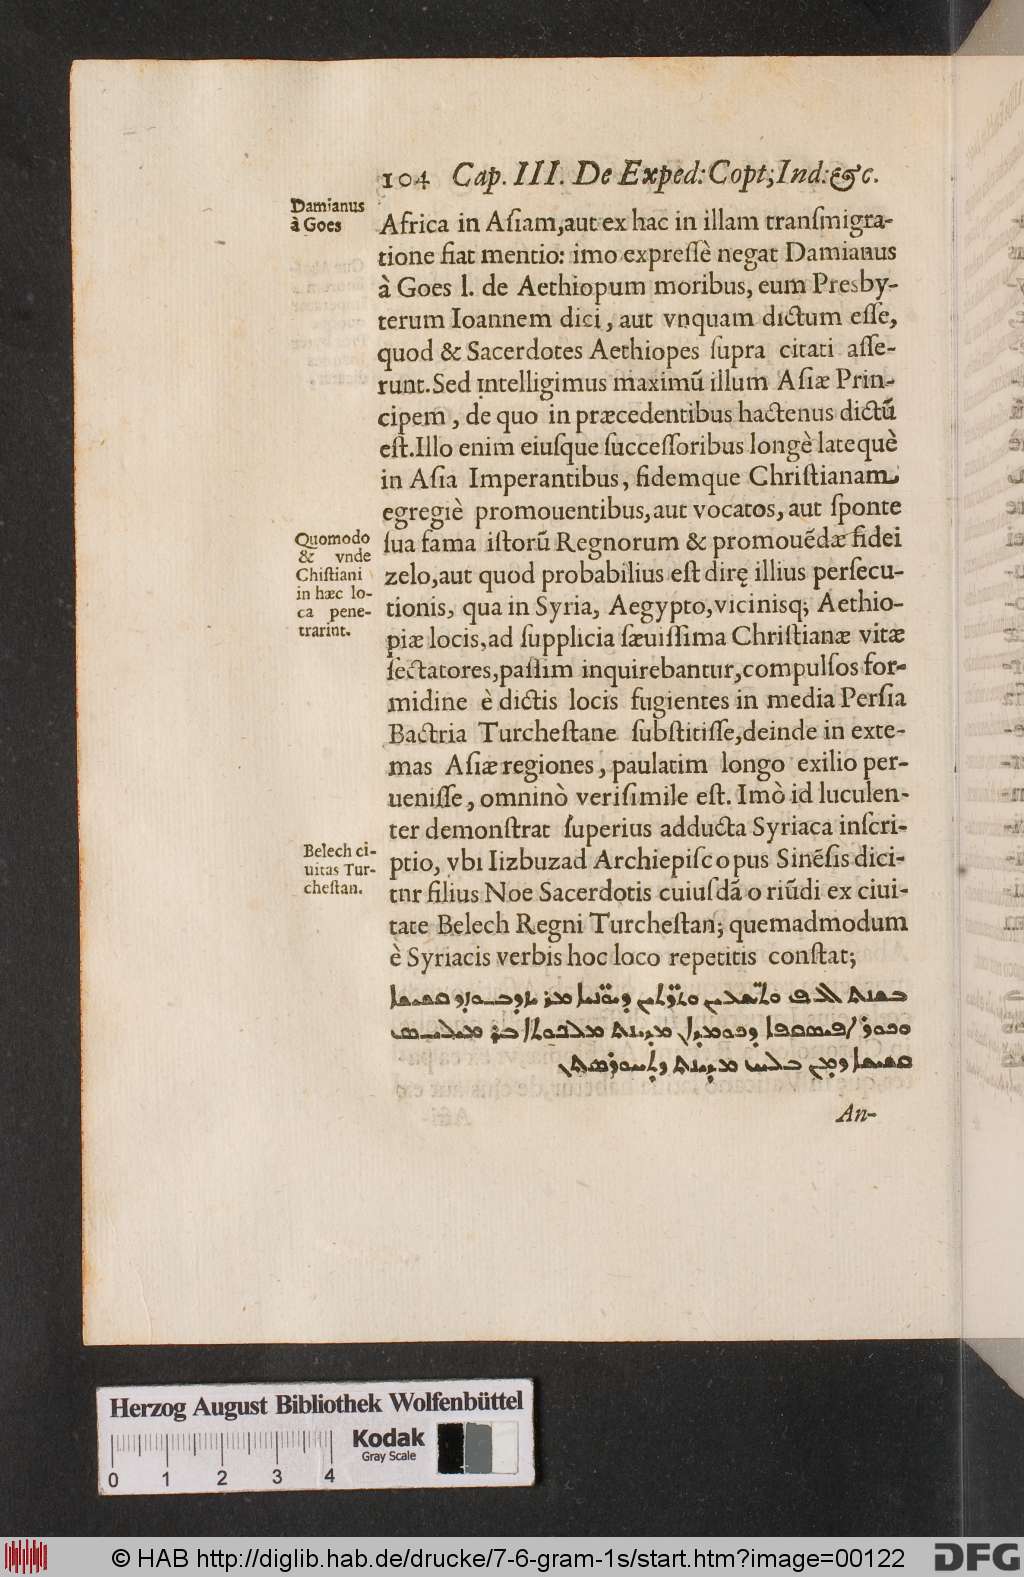 104 Cap. III. De Exped: Copt; Ind: &c.
Damianus
à Goes
Africa in Aſiam, aut ex hac in illam tranſmigra-
tione fiat mentio: imo expreſſè negat Damianus
à Goes l. de Aethiopum moribus, eum Presby-
terum Ioannem dici, aut vnquam dictum eſſe,
quod & Sacerdotes Aethiopes ſupra citati aſſe-
runt. Sed intelligimus maximũ illum Aſiæ Prin-
cipem, de quo in præcedentibus hactenus dictũ
eſt. Illo enim eiuſque ſucceſſoribus longè latequè
in Aſia Imperantibus, fidemque Chriſtianam
egregiè promouentibus, aut vocatos, aut ſponte
Quomodo
& vnde
Chiſtiani
in hæc lo-
ca pene-
trarint.
ſua fama iſtorũ Regnorum & promouẽdæ fidei
zelo, aut quod probabilius eſt dirę illius perſecu-
tionis, qua in Syria, Aegypto, vicinisq; Aethio-
piæ locis, ad ſupplicia ſæuiſſima Chriſtianæ vitæ
ſectatores, paſſim inquirebantur, compulſos for-
midine è dictis locis fugientes in media Perſia
Bactria Turcheſtane ſubſtitiſſe, deinde in exte-
mas Aſiæ regiones, paulatim longo exilio per-
ueniſſe, omninò veriſimile eſt. Imò id luculen-
ter demonſtrat ſuperius adducta Syriaca inſcri-
Belech ci-
uitas Tur-
cheſtan.
ptio, vbi Iizbuzad Archiepiſcopus Sinẽſis dici-
tnr filius Noe Sacerdotis cuiuſdã oriũdi ex ciui-
tate Belech Regni Turcheſtan; quemadmodum
è Syriacis verbis hoc loco repetitis conſtat;
ܒܫܢܬ ܐܠܦ ܘܬܫܥܝܢ ܘܬܪܬܝܢ ܕܝܘܢܝܐ ܡܪܝ ܝܙܕܒܘܙܝܕ ܩܫܝܫܐ
ܘܟܘܪܐܦܝܣܩܘܦܐ ܕܟܘܡܕܐܢ ܡܕܝܢܬ ܡܠܟܘܬܐ ܒܪ ܡܝܠܝܣ
ܩܫܝܫܐ ܕܡܢ ܒܠܚ ܡܕܝܢܬ ܕܬܚܘܪܣܬܢ
An-
Herzog August Bibliothek Wolfenbüttel
Kodak
Gray Scale
0 1 2 3 4
© HAB http://diglib.hab.de/drucke/7-6-gram-1s/start.htm?image=00122
DFG